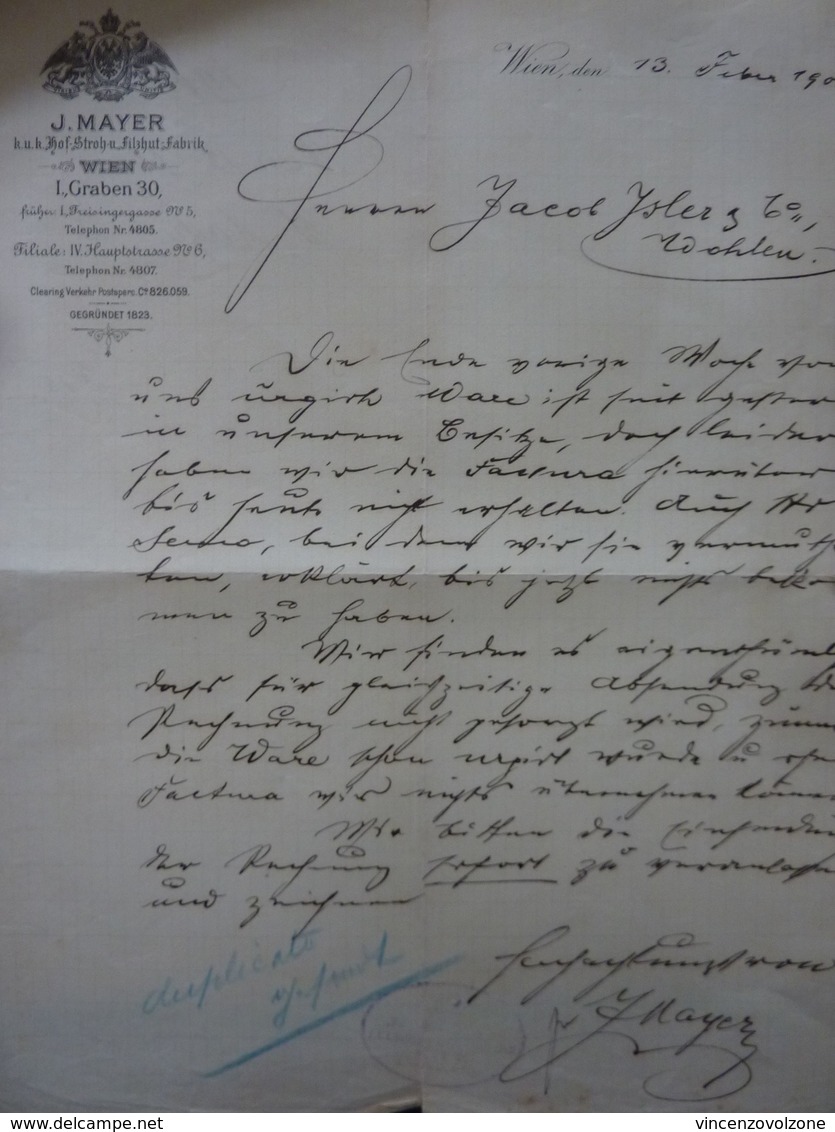 J. MAYER
k.u.k. Hof-Stroh-u. Filzhut-Fabrik
WIEN
I., Graben 30,
früher: I., Freisingergasse No 5,
Telephon Nr. 4805.
Filiale: IV. Hauptstrasse No 6,
Telephon Nr. 4807.
Clearing Verkehr Postsparc. Cto 826.059.
GEGRÜNDET 1823.
Wien, den 13. Feber 190
Herren Jacob Isler & Co,
Wohlen.
Die Ende vorige Woche von
uns urgirte Ware ist seit gester
in unserem Besitze, doch leider
haben wir die Factura hierüber
bis heute nicht erhalten. Auch Hr
bei dem wir sie vermuth
ten, erklärt, bis jetzt nichts beko
men zu haben.
Wir finden es eigenthüml
dass für gleichzeitige Absendung de
Rechnung nicht gesorgt wird, zuma
die Ware schon urgirt wurde u. ohn
Factura wir nichts übernehmen könne
Wir bitten die Einsendu
der Rechnung sofort zu veranlasse
und zeichnen
Hochachtungsvoll
pr J Mayer
duplicate
gesandt
delcampe.net
vincenzovolzone